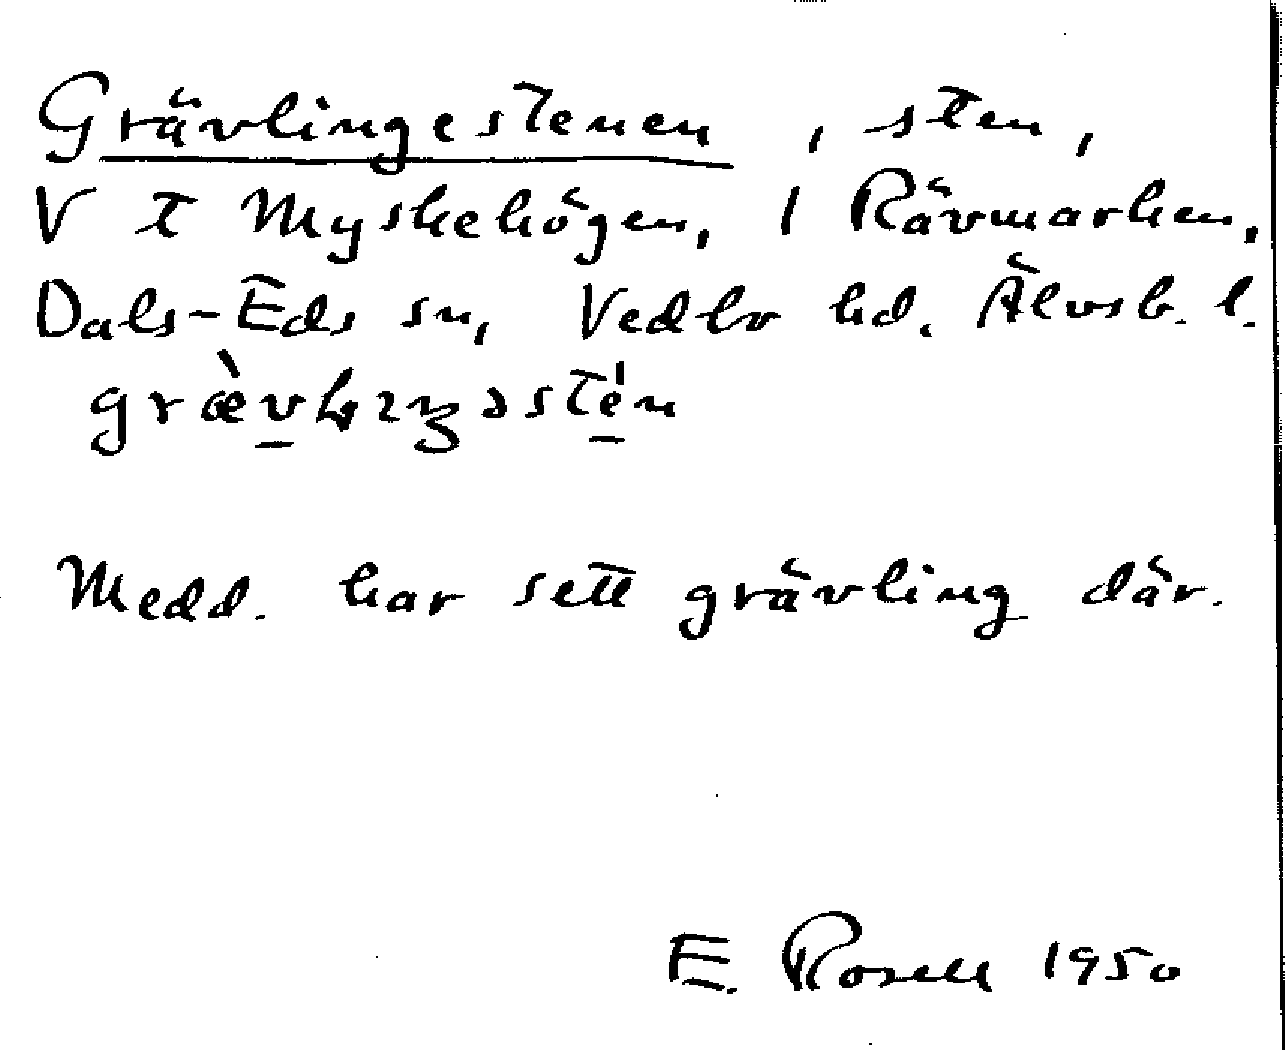 Grävlingestenen, sten,
V t Myskehögen, i Rävmarken,
Dals-Eds sn, Vedbo hd. Älvsb. l.
Medd. har sett grävling där.
E. Rosell 1950